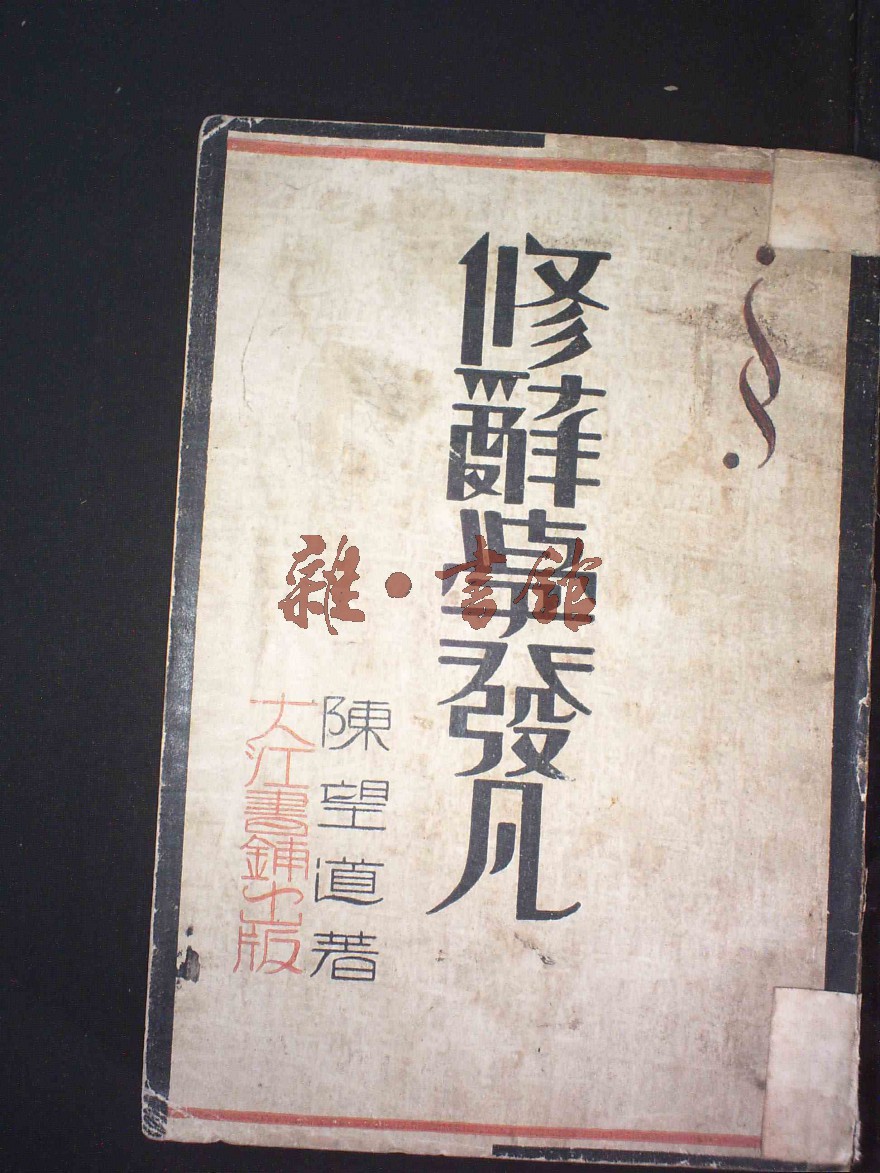 修辭學發凡
陳望道著
大江書鋪出版
雜·書館